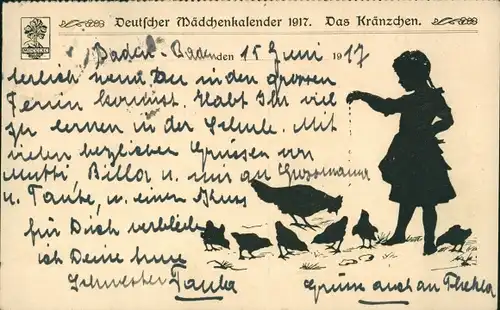 Deutscher Mädchenkalender 1917. Das Kränzchen.
Baden-Baden den 15 Juni 1917
wenn Du in den grossen
Ferien kommst. Habt Ihr viel
zu lernen in der Schule. Mit
vielen herzlichen Grüssen von
Mutti, Billa u. mir an Grossmama
u. Tante, u. einen Kuss
für Dich verbleibe
ich Deine treue
Schwester Tauba
Grüsse auch an Thekla